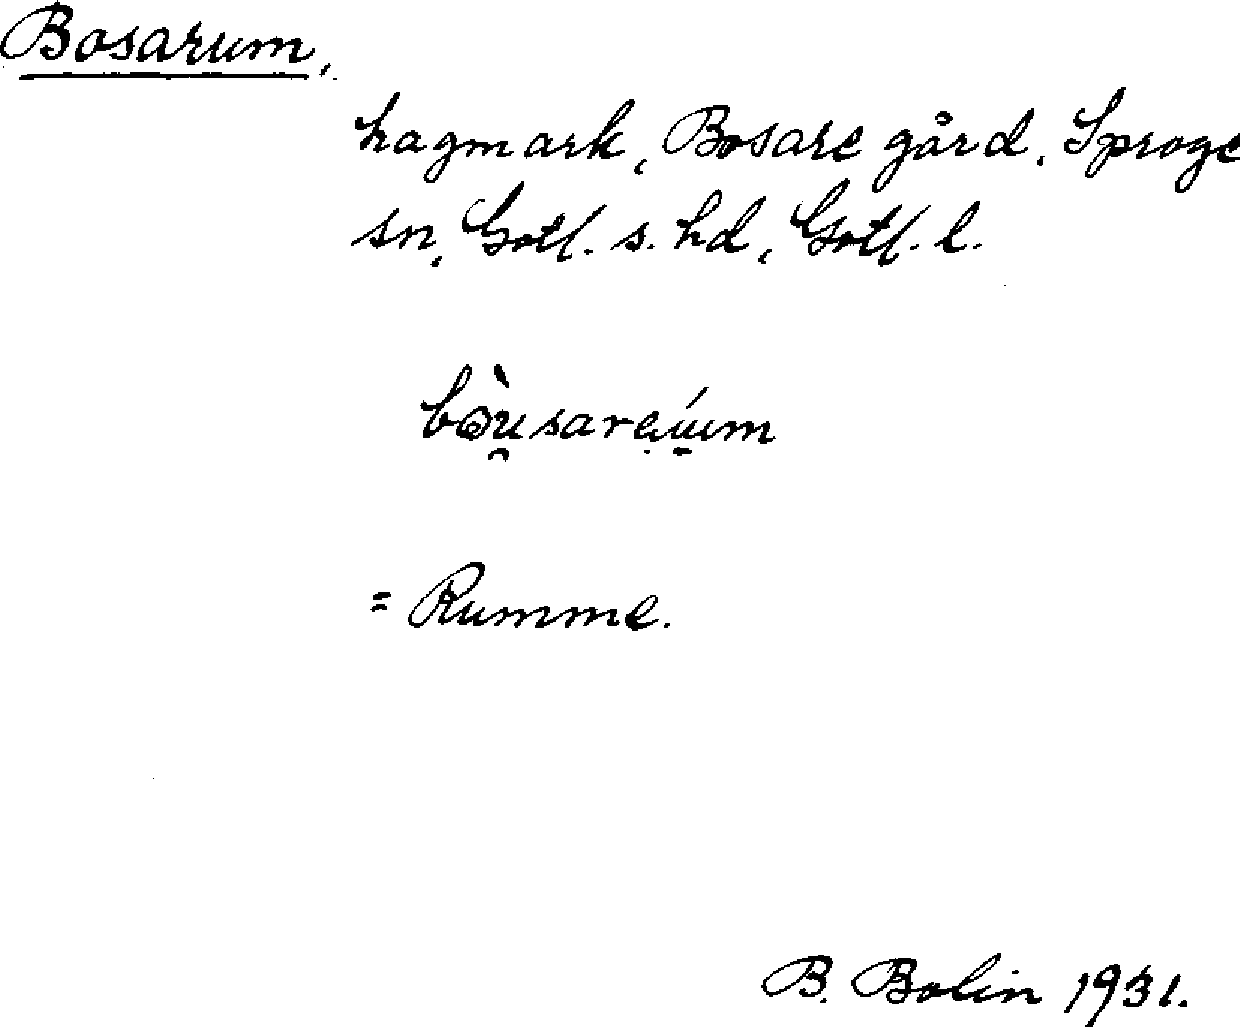 Bosarum,
hagmark, Bosare gård, Sproge
sn, Gotl. s. hd, Gotl. l.
= Rumme.
B. Bolin 1931.